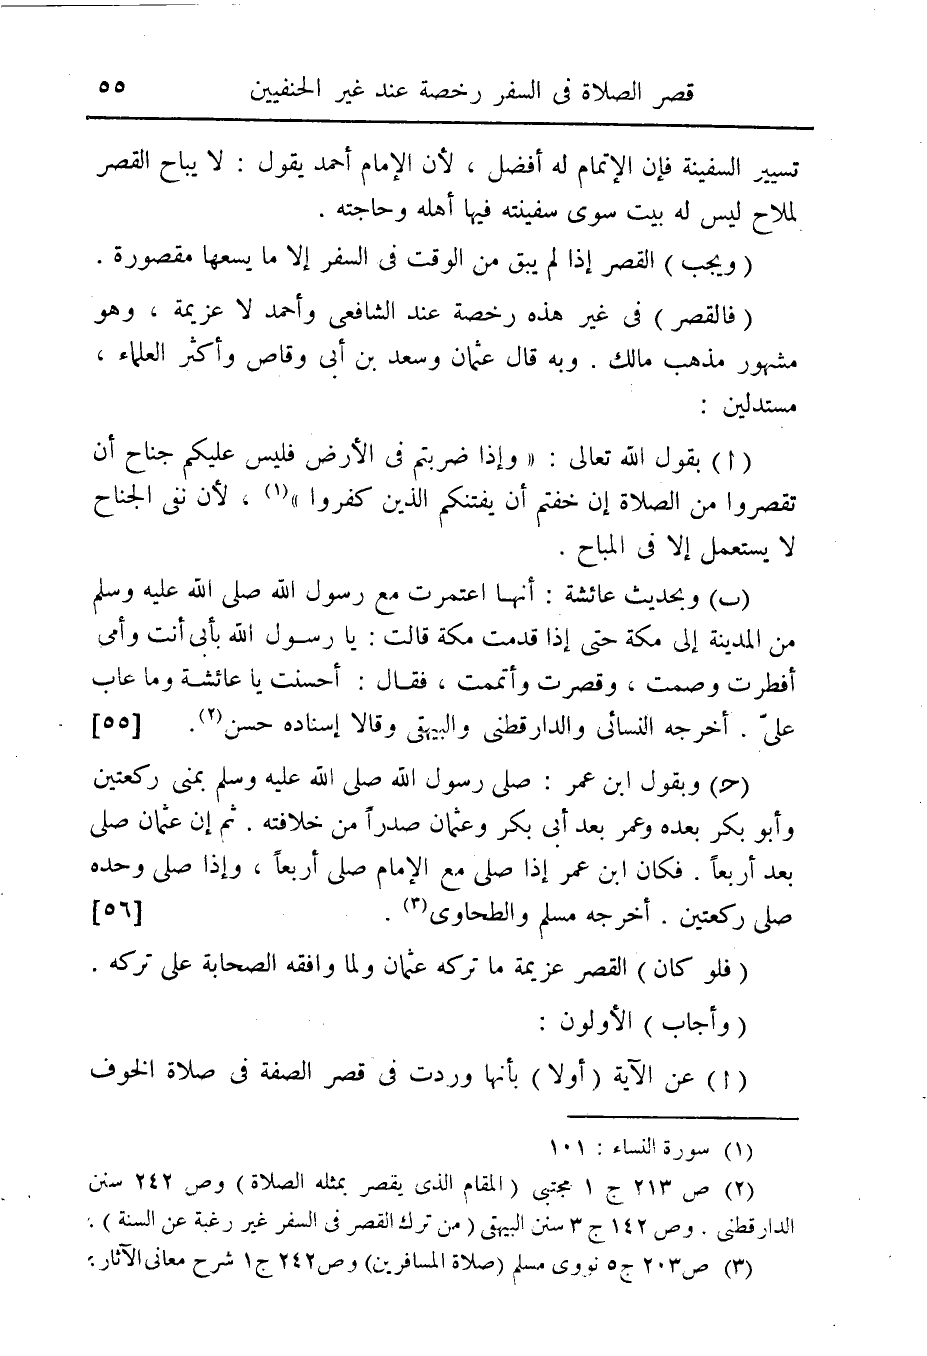 قصر الصلاة فى السفر رخصة عند غير الحنفيين ٥٥
تسيير السفينة فإن الإتمام له أفضل ، لأن الإمام أحمد يقول : لا يباح القصر
لملاح ليس له بيت سوى سفينته فيها أهله وحاجته .
( ويجب ) القصر إذا لم يبق من الوقت فى السفر إلا ما يسعها مقصورة .
( فالقصر ) فى غير هذه رخصة عند الشافعى وأحمد لا عزيمة ، وهو
مشهور مذهب مالك . وبه قال عثمان وسعد بن أبى وقاص وأكثر العلماء ،
مستدلين :
(ا) بقول الله تعالى : « وإذا ضربتم فى الأرض فليس عليكم جناح أن
تقصروا من الصلاة إن خفتم أن يفتنكم الذين كفروا »(١) ، لأن نفى الجناح
لا يستعمل إلا فى المباح .
(ب) وبحديث عائشة : أنهـا اعتمرت مع رسول الله صلى الله عليه وسلم
من المدينة إلى مكة حتى إذا قدمت مكة قالت : يا رسـول الله بأبى أنت وأمى
أفطرت وصمت ، وقصرت وأتممت ، فقـال : أحسنت يا عائشـة وما عاب
علىّ . أخرجه النسائى والدارقطنى والبيهقى وقالا إسناده حسن(٢). [٥٥]
(حـ) وبقول ابن عمر : صلى رسول الله صلى الله عليه وسلم بمنى ركعتين
وأبو بكر بعده وعمر بعد أبى بكر وعثمان صدراً من خلافته . ثم إن عثمان صلى
بعد أربعاً . فكان ابن عمر إذا صلى مع الإمام صلى أربعاً ، وإذا صلى وحده
صلى ركعتين . أخرجه مسلم والطحاوى(٣) . [٥٦]
( فلو كان ) القصر عزيمة ما تركه عثمان ولما وافقه الصحابة على تركه .
( وأجاب ) الأولون :
(ا) عن الآية (أولا) بأنها وردت فى قصر الصفة فى صلاة الخوف
(١) سورة النساء : ١٠١
(٢) ص ٢١٣ ج ١ مجتبى ( المقام الذى يقصر بمثله الصلاة ) وص ٢٤٢ سنن
الدارقطنى . وص ١٤٢ ج ٣ سنن البيهقى ( من ترك القصر فى السفر غير رغبة عن السنة ) .
(٣) ص٢٠٣ ج٥ نووى مسلم (صلاة المسافرين) وص٢٤٢ ج١ شرح معانى الآثار .